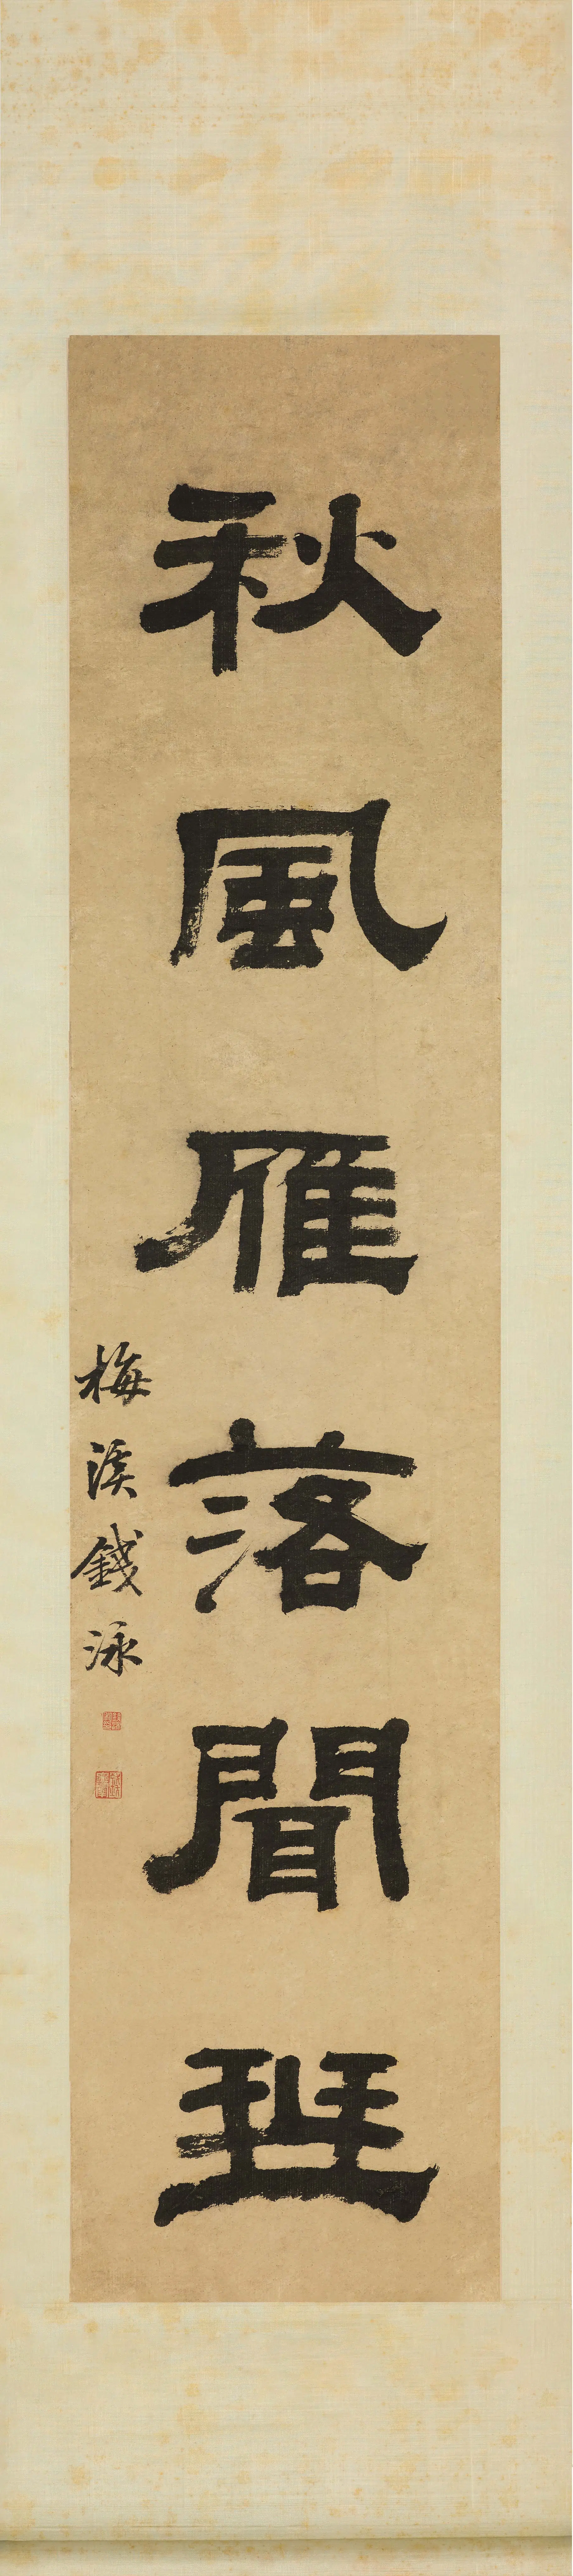 秋風雁落聞班
梅溪錢泳